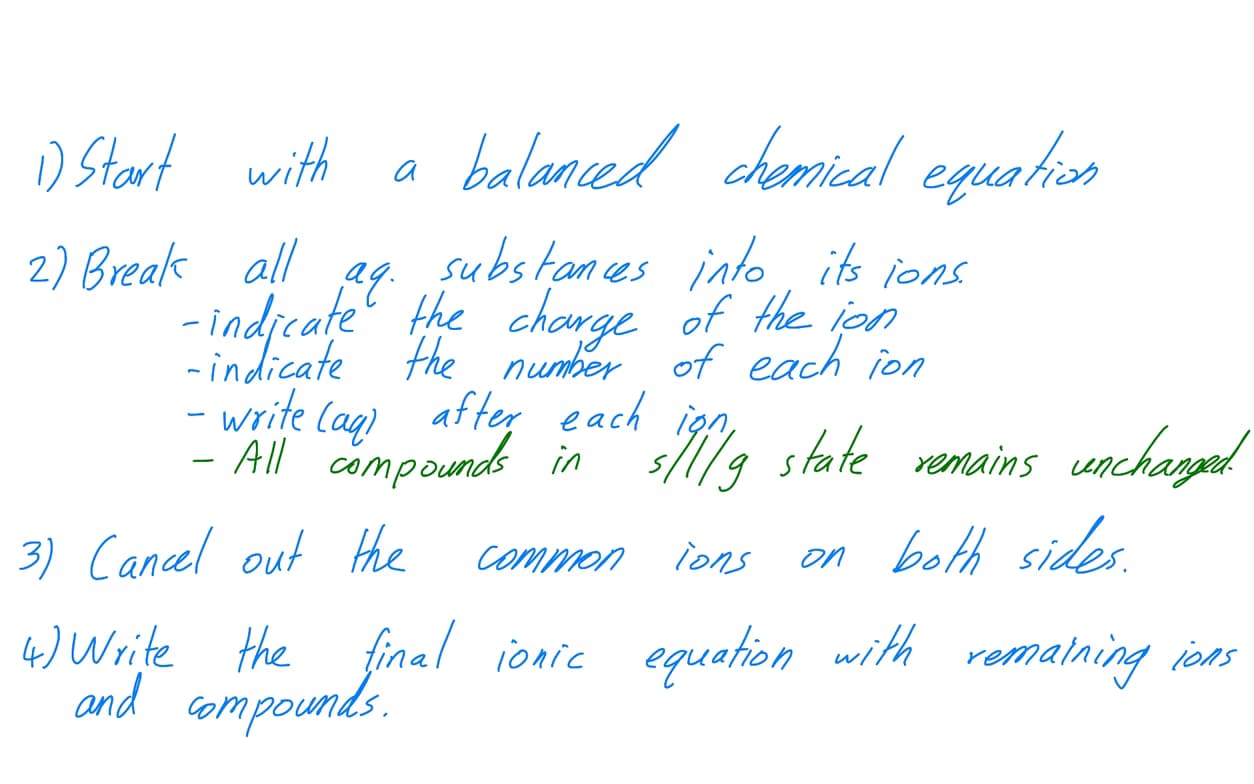 1) Start with a balanced chemical equation
2) Break all aq. substances into its ions.
- indicate the charge of the ion
- indicate the number of each ion
- write (aq) after each ion
- All compounds in s/l/g state remains unchanged.
3) Cancel out the common ions on both sides.
4) Write the final ionic equation with remaining ions
and compounds.